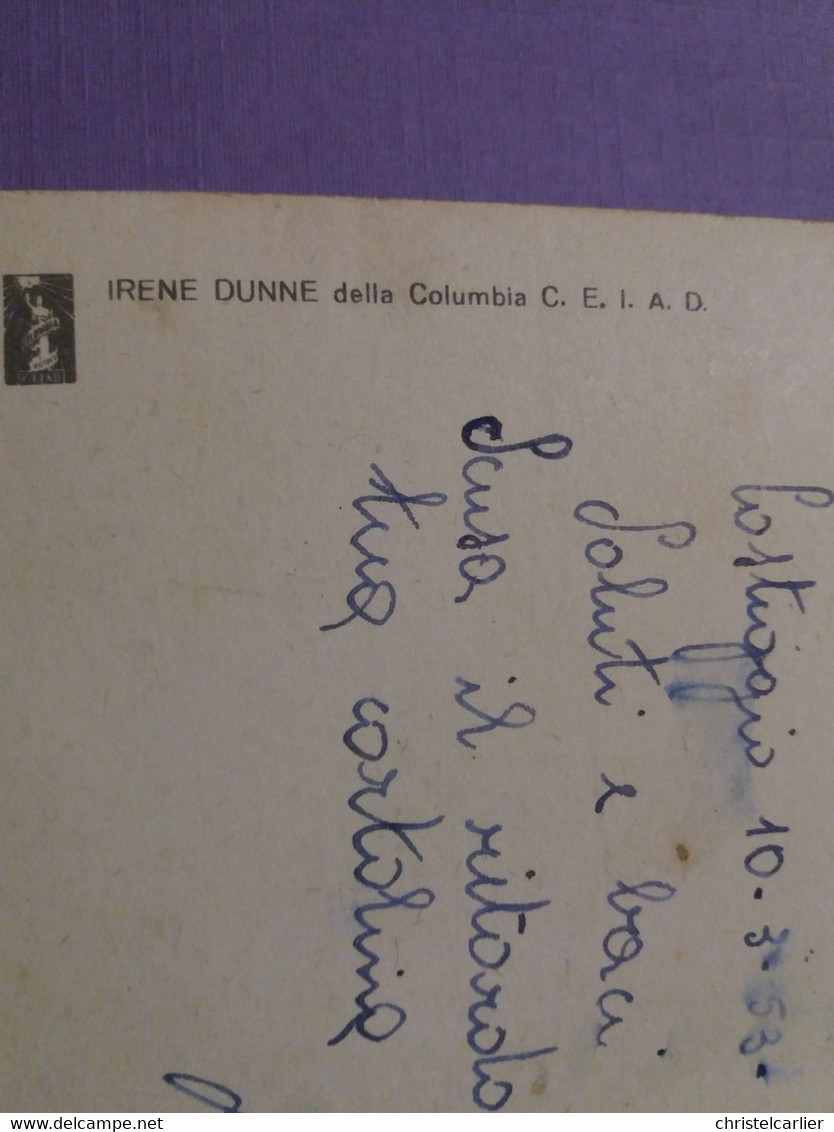 IRENE DUNNE della Columbia C. E. I. A. D.
Casteggio 10.3.53.
Saluti e baci
Scusa il ritardo
tua cartolina
delcampe.net
christelcarlier